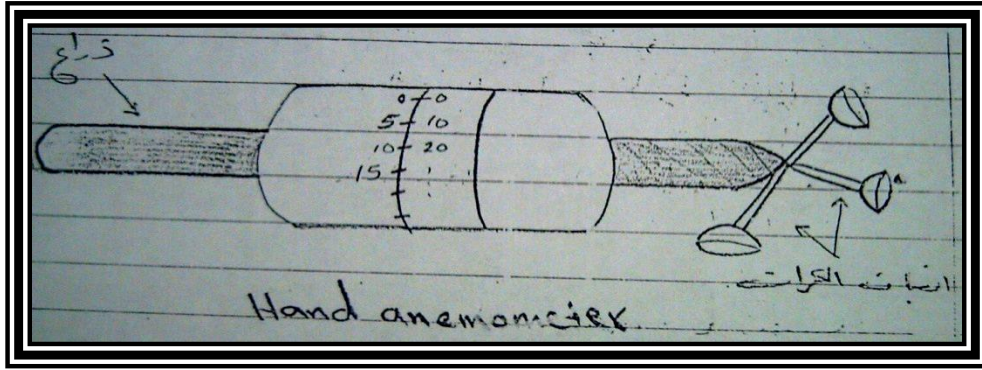 ذراع
0 0
5 10
10 20
15
انصاف الكرات
Hand anemometer